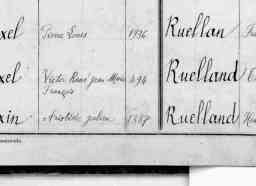 xel Pierre Louis 1936 Ruellan
xel Victor René Jean Marie 494 Ruelland
François
xin Aristide Julien 1387 Ruelland